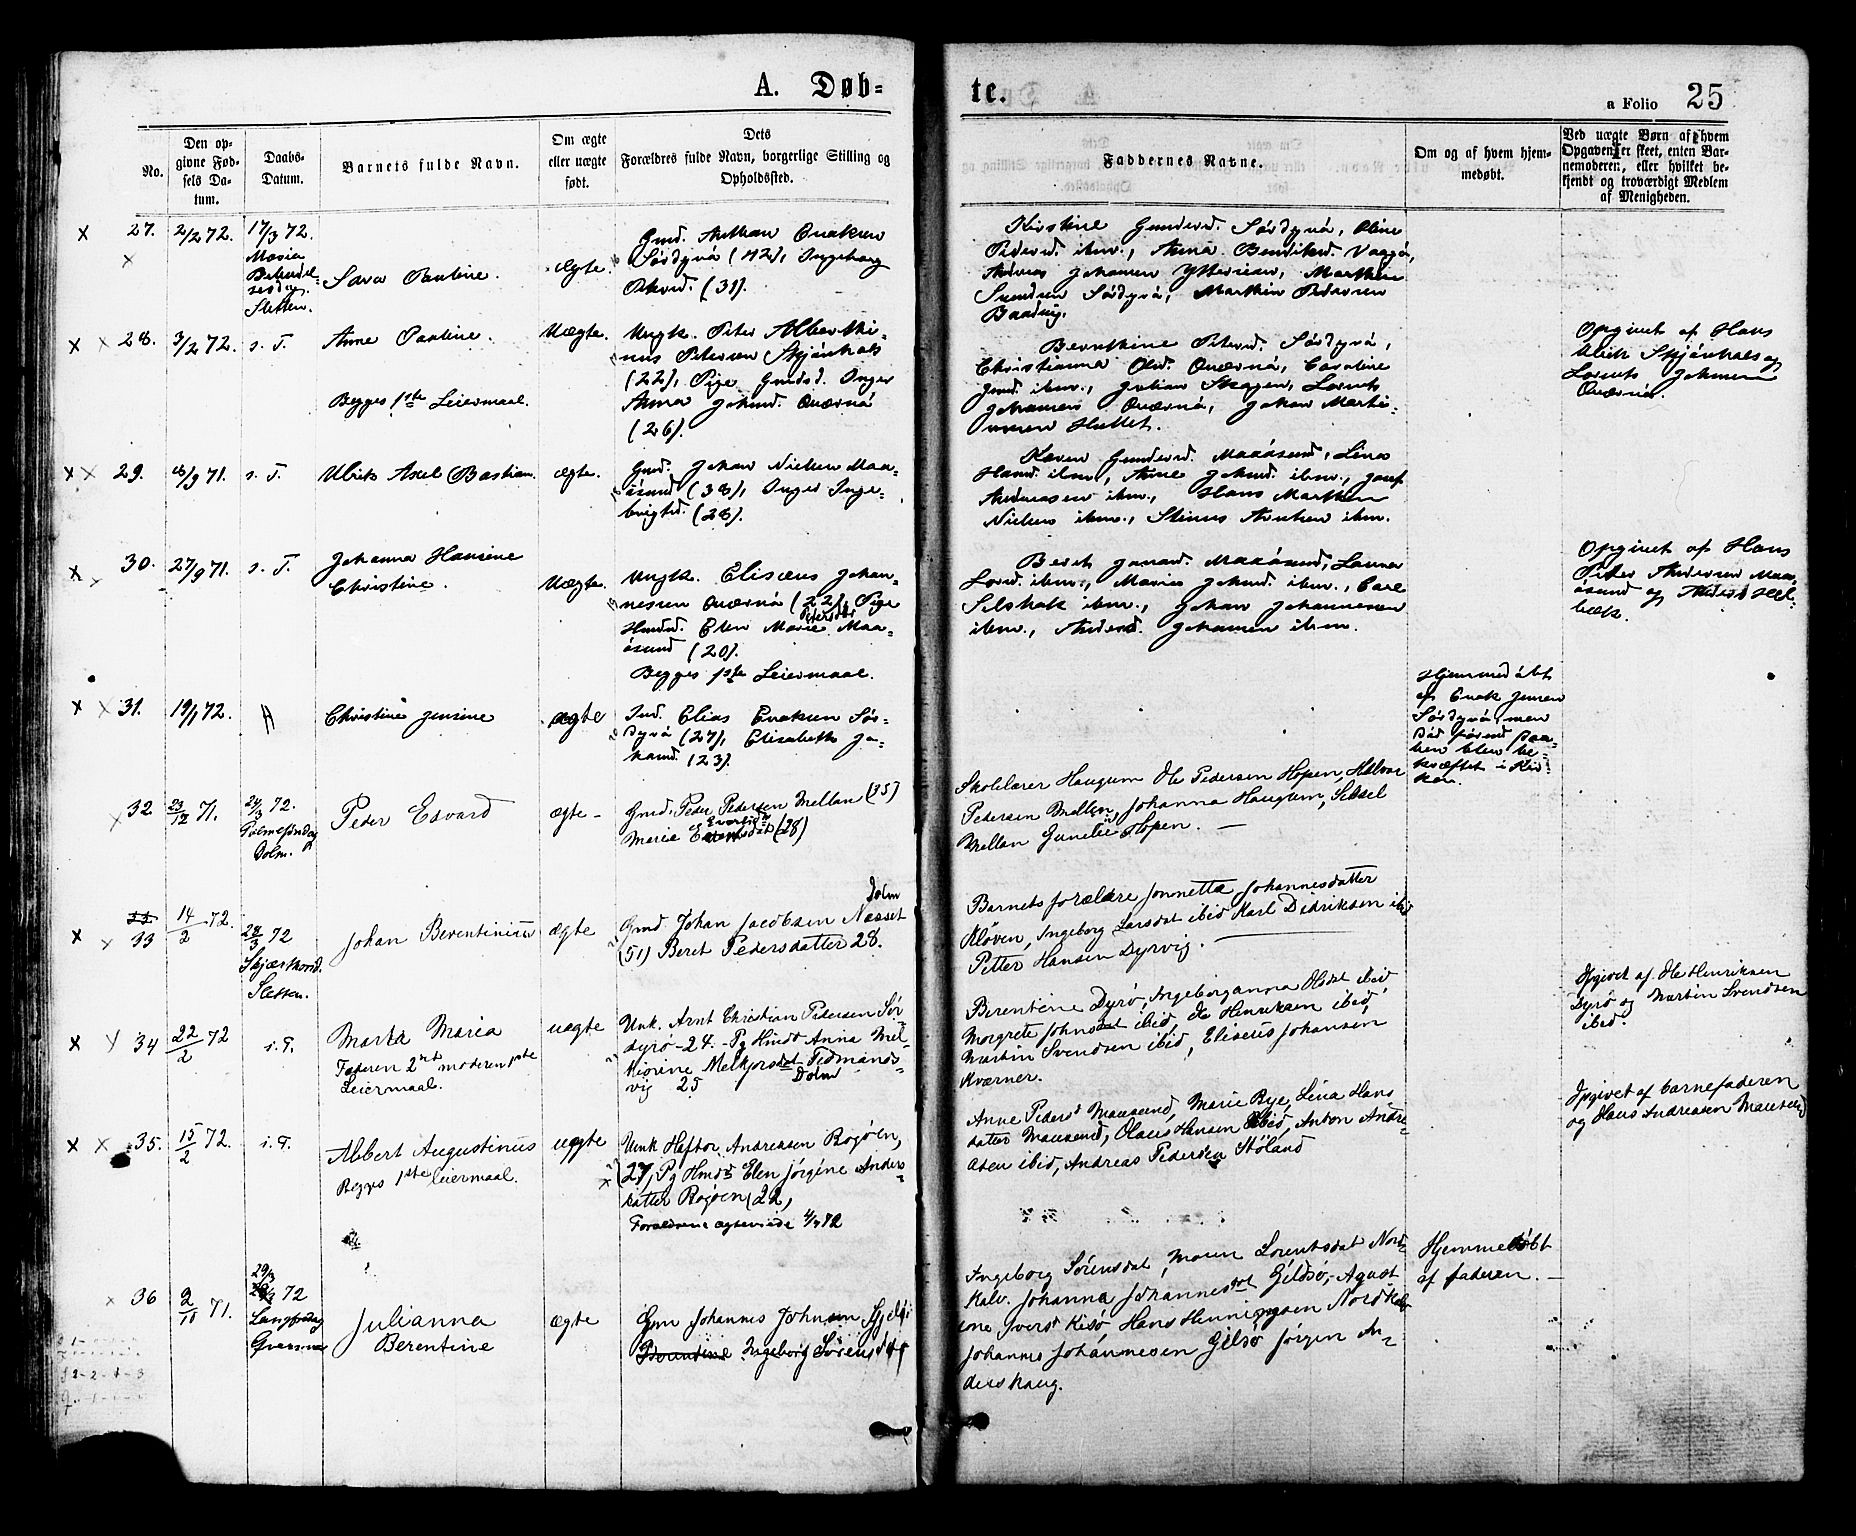 A. Døb=
te.
a Folio 25
No.
Den op=
givne Fød=
sels Da=
tum.
Daabs=
Datum.
Barnets fulde Navn.
Om ægte
eller uægte
født.
Dets
Forældres fulde Navn, borgerlige Stilling og
Opholdssted.
Faddernes Navne.
Om og af hvem hjem=
medøbt.
Ved uægte Børn af hvem
Opgaven er skeet, enten Bar=
nemoderen, eller hvilket be=
kjendt og troværdigt Medlem
af Menigheden.
27.
2/2 72.
17/3 72.
Maria
Sletten.
Sara Pauline.
Ægte.
Gmd. Arthan Enoksen
Sördyrö (42), Ingeborg
(31).
Kirstine Gunderd. Sördyrö, Oline
Pedersd. ibm., Anna Bendiksd. Vaagö,
Andreas Johansen Ytterøien, Marthin
Svendsen Sördyrö, Marthin Pedersen
28.
3/2 72.
s. T.
Anne Pauline.
Begges 1ste Leiermaal.
Uægte.
Ungk. Peter Alberthi=
nus Petersen Skjönhals
(22), Pige Gmdsd. Inger
Anna Johnsd. Quærnö
(26).
Bernthine Petersd. Sördyrö,
Christianna Olsd. Quærnö, Caroline
Johansen Quærnö, Johan Marti=
nusen Hattet.
Opgivet af Hans
Ulrik Skjönhals og
Lorents Johnsen
Quærnö.
29.
8/9 71.
s. T.
Ulrik Axel Bastian.
ægte.
Gmd. Johan Nielsen Maa=
ösund (38), Inger Inge=
brigtsd. (28).
Karen Gundersd. Maaösund, Lina
Hansd. ibm., Anne Johnsd. ibm., Josef
Andreassen ibm., Hans Marthin
Nielsen ibm., Stinus Arntsen ibm.
30.
27/9 71.
s. T.
Johanna Hansine
Christine.
Uægte.
Ungk. Elisæus Johan=
nessen Quærnö (22), Pige
Hmdsd. Elen Marie Petersdtr Maa=
ösund (20).
Begges 1ste Leiermaal.
Beret Jonasd. Maaösund, Laura
Larsd. ibm., Marie Johnsd. ibm., Carl
Selshak ibm., Johan Johannesen
ibm., Anders Johansen ibm.
Opgivet af Hans
Peter Andersen Maa=
ösund og Anders Hol=
bæk.
31.
19/1 72.
Christine Jensine
ægte
Ind. Elias Enoksen Sör=
dyrö (27), Elisabeth Jo=
hansd. (23).
Hjemmedöbt
af Enok Jensen
Sördyrö, men
död förend Daa=
ben blev be=
kræftet i Kir=
ken.
32
23/12 71.
24/3 72.
Palmesöndag
Dolm.
Peder Edvard
ægte -
Gmd. Peder Pedersen Mellan (35)
Marie (28)
Skolelærer Haugum Ole Pedersen Hopen, Halvor
Petersen Mellan, Johanna Haugum, Sissel
Mellan Hopen. —
33
14/2 72.
28/3 72
Skjærthorsd.
Sletten.
Johan Berentinius
ægte
Gmd Johan Jacobsen Næsset Dolm
(51) Beret Pedersdatter 28.
Barnets forældre Jonnetta Johannesdatter
Kløven, Ingeborg Larsdat ibid Karl Didriksen ibid
Petter Hansen Dyrvig.
34
22/2 72
i. T.
Marta Maria
Faderen 2net moderen 1ste
Leiermaal.
uægte
Unk. Arnt Christian Pedersen Sør
dyrø - 24. - Pg Hmdt Anna Mel=
kiorine Melkjorsdat Tidmands=
vig 25 Dolm
Berentine Dyrø, Ingeborganna Olsdt ibid
Margrete Johnsdat ibid, Ole Henriksen ibid,
Martin Svendsen ibid, Eliseus Johansen
Kværner.
Opgivet af Ole Henriksen
Dyrø og Martin Svendsen
ibid.
35.
15/2 72.
i. T.
Albert Augustinus
Begges 1ste leiermaal.
uægte
Unk Heftor Andreasen Bogøen,
27, Pg Hmdt Elen Jörgine Anders
datter Bogøen (22,
Forældrene ægteviede 4/7 72
Anne Pedersd Mausund, Marie Bye, Lina Hans
datter Mausund, Olaus Hansen ibid, Anton Andre=
asen ibid, Andreas Pedersen Støland
Opgivet af barnefaderen
og Hans Andreasen Mausund
36
2/10 71.
29/3 72
Langfredag
Julianna
Berentine
ægte
Gm Johannes Johnsen
Berentine Ingeborg Sörensdat
Ingeborg Sörensdat, Maren Lorentsdat Nord=
Kalv. Johanna Johannesdat Gjeldsø, Agust
ine Iversd Kisø, Hans Henningsen Nord Kalv
Johannes Johannesen Gildsø Jörgen An=
derskaug.
Hjemmedøbt
af faderen. —